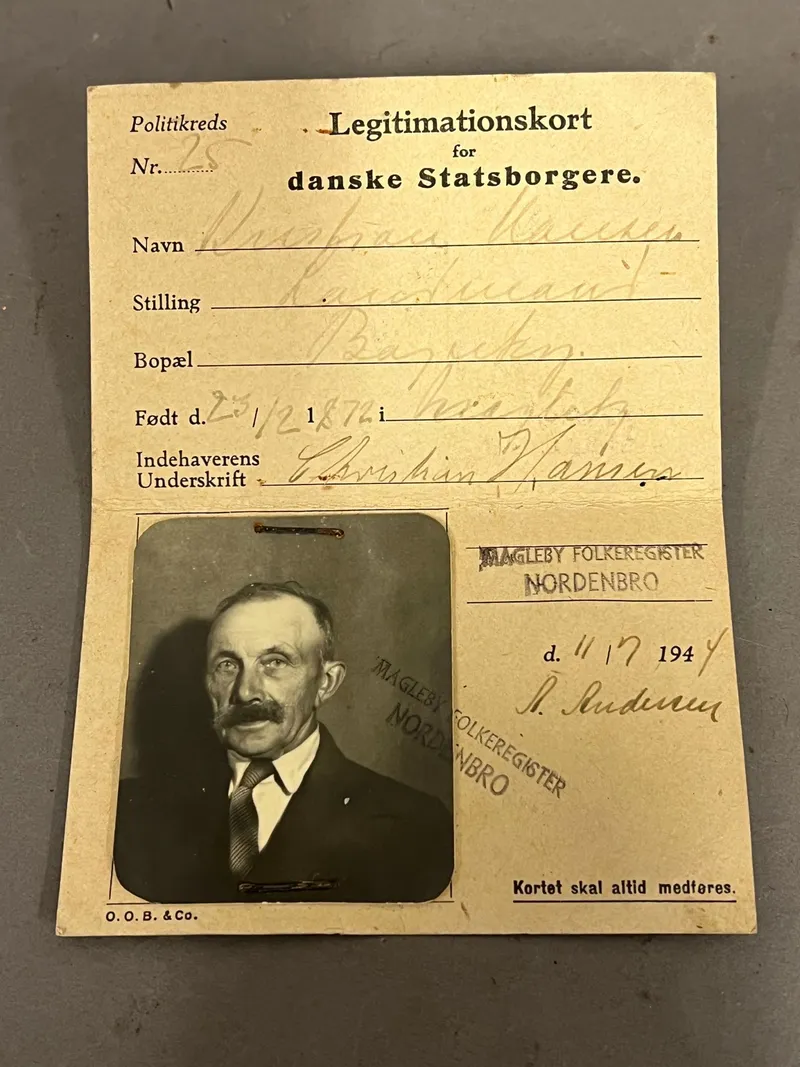 Politikreds
Legitimationskort
Nr. 25
for
danske Statsborgere.
Navn Kristian Hansen
Stilling Landmand
Bopæl
Født d. 23/12 1872 i
Indehaverens
Underskrift Christian Hansen
MAGLEBY FOLKEREGISTER
NORDENBRO
d. 11/7 1944
A. Andersen
MAGLEBY FOLKEREGISTER
NORDENBRO
Kortet skal altid medføres.
O. O. B. & Co.